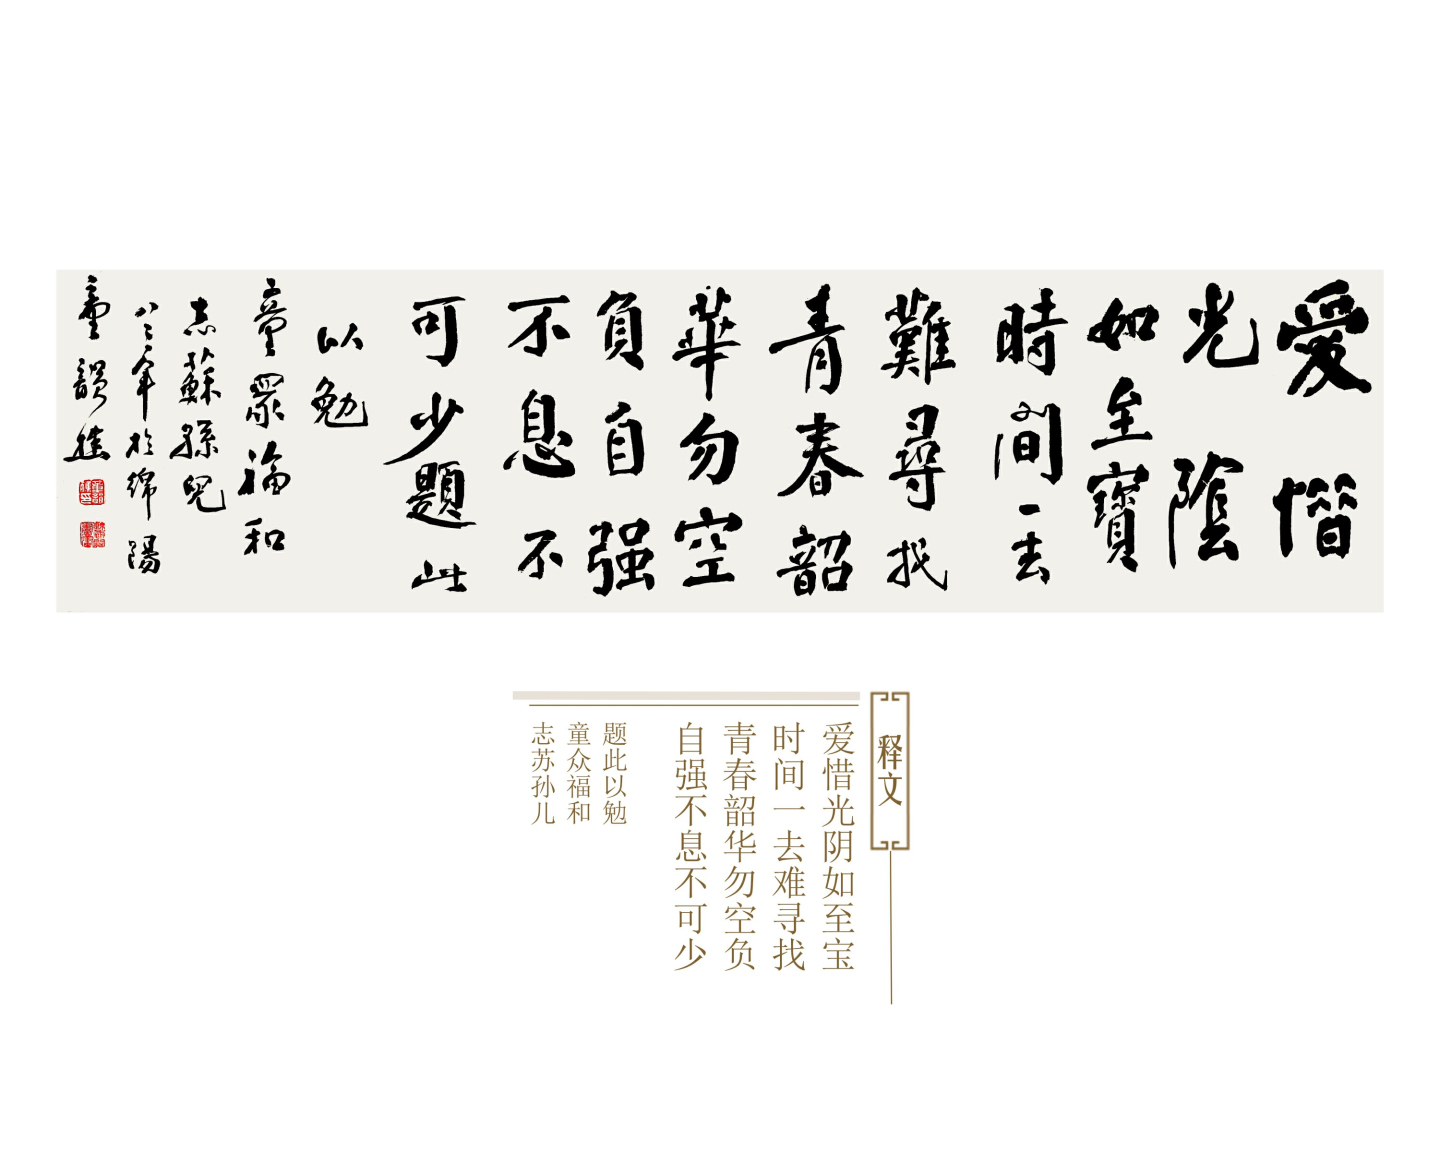 爱惜
光陰
如至寶
時间一去
難尋找
青春韶
華勿空
負自强
不息不
可少題此
以勉
童眾福和
志蘇孫兒
八二年於綿陽
童韻樵
释文
爱惜光阴如至宝
时间一去难寻找
青春韶华勿空负
自强不息不可少
题此以勉
童众福和
志苏孙儿